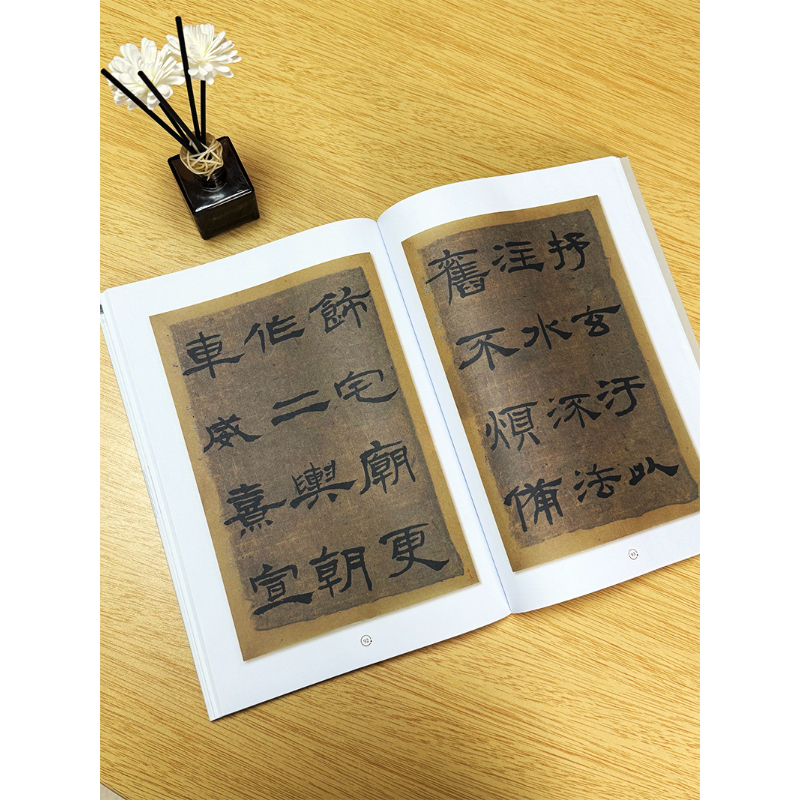 飾宅廟更
作二輿朝
車威熹宣
92
抒玄汙以
注水流法
舊不煩備
93